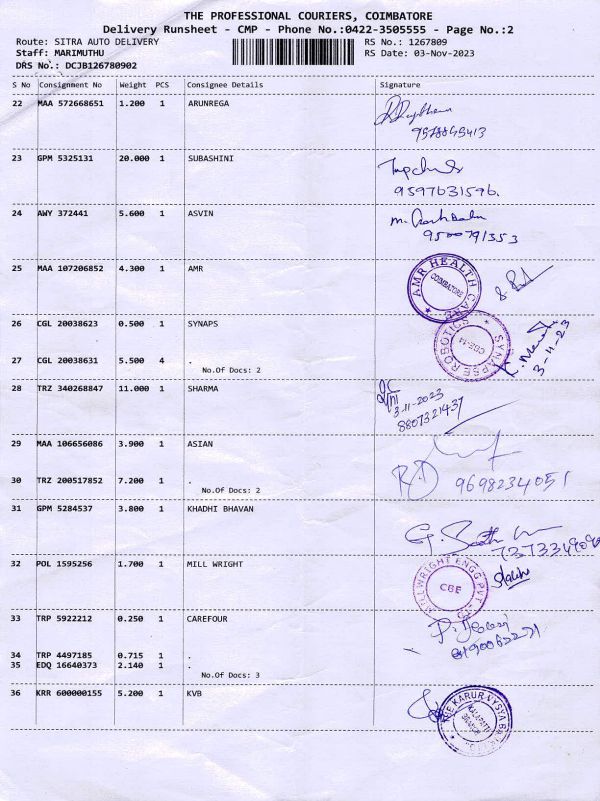 THE PROFESSIONAL COURIERS, COIMBATORE
Delivery Runsheet - CMP - Phone No.:0422-3505555 - Page No.:2
Route: SITRA AUTO DELIVERY RS No.: 1267809
Staff: MARIMUTHU RS Date: 03-Nov-2023
DRS No.: DCJB126780902
S No Consignment No Weight PCS Consignee Details Signature
22 MAA 572668651 1.200 1 ARUNREGA
23 GPM 5325131 20.000 1 SUBASHINI
9597631596.
24 AWY 372441 5.600 1 ASVIN
9500791353
25 MAA 107206852 4.300 1 AMR
AMR HEALTH CARE
COIMBATORE
26 CGL 20038623 0.500 1 SYNAPS
SYNAPSE ROBOTICS
CBE-14
3-11-23
27 CGL 20038631 5.500 4 .
No.Of Docs: 2
28 TRZ 340268847 11.000 1 SHARMA
3-11-2023
8807321437
29 MAA 106656086 3.900 1 ASIAN
30 TRZ 200517852 7.200 1 .
No.Of Docs: 2
9698234051
31 GPM 5284537 3.800 1 KHADHI BHAVAN
32 POL 1595256 1.700 1 MILL WRIGHT
MILLWRIGHT ENGG PVT
CBE
33 TRP 5922212 0.250 1 CAREFOUR
34 TRP 4497185 0.715 1 .
35 EDQ 16640373 2.140 1 .
No.Of Docs: 3
36 KRR 600000155 5.200 1 KVB